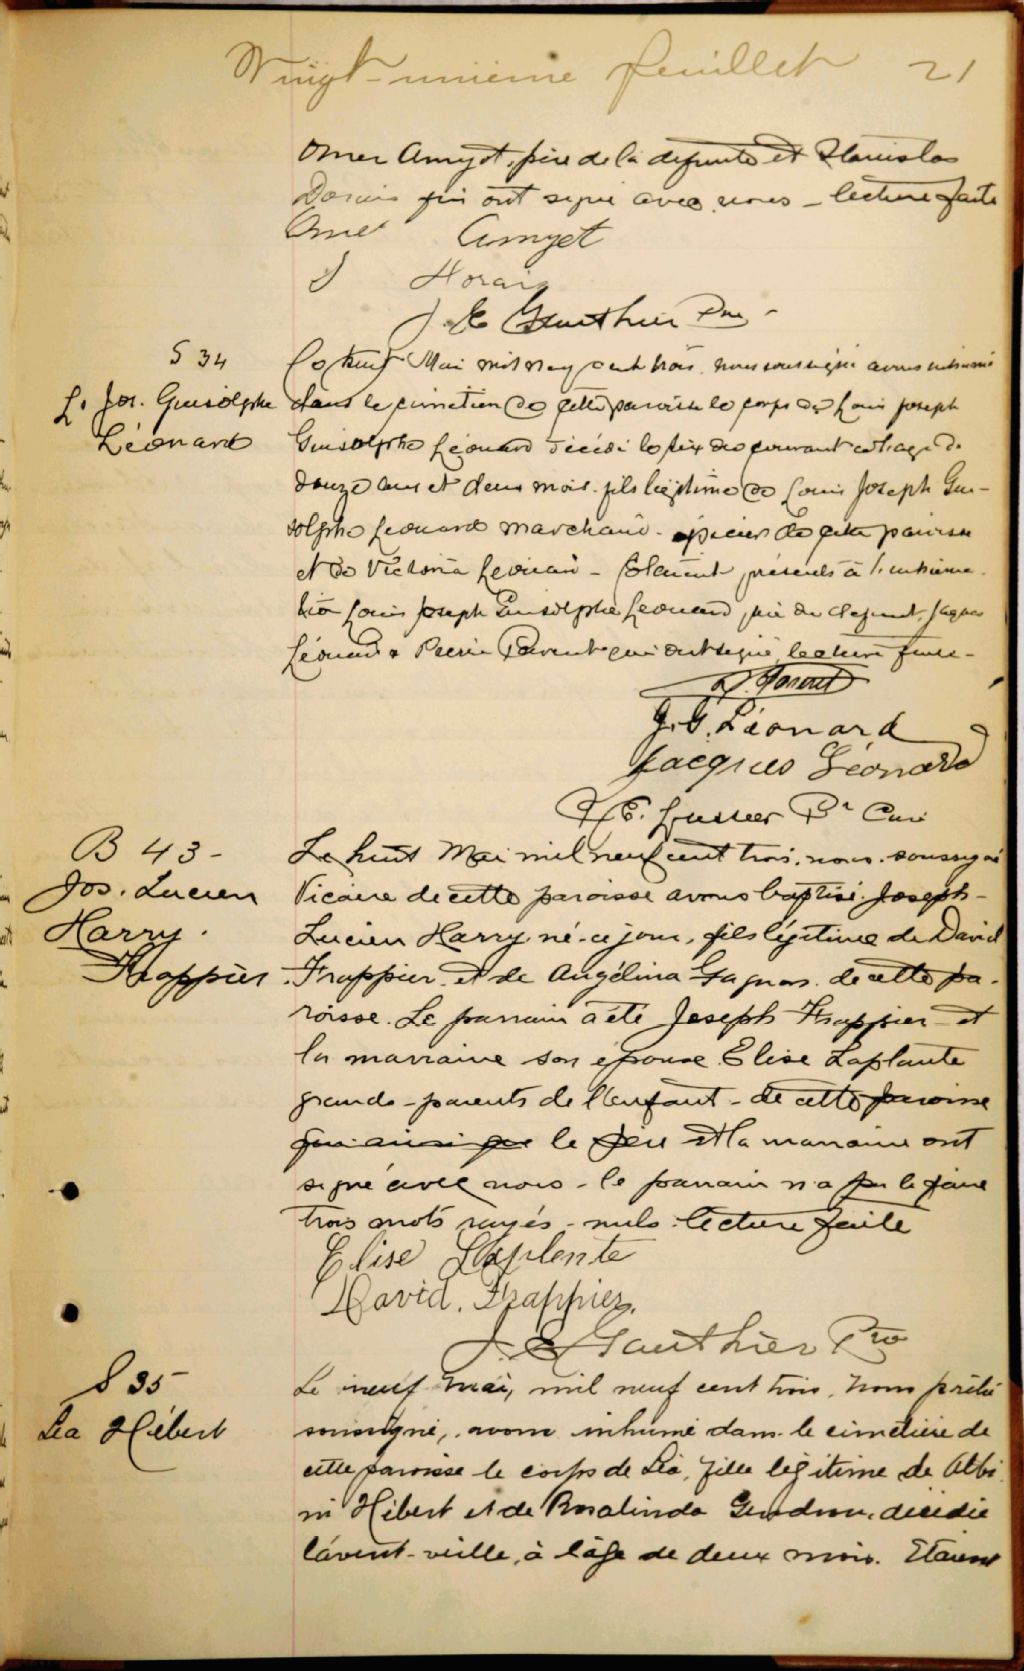 Vingt-unième feuillet 21
Omer Amyot, père de la defunte et Stanislas
qui ont signé avec nous - lecture faite
Omer Amyot
S
J. E. Gauthier Ptre -
S 34
L. Jos. Guidolphe
Léonard
Ce huit Mai mil neuf cent trois nous soussigné avons inhumé
dans le cimetière de cette paroisse le corps de Louis Joseph
Guidolphe Léonard décédé le six du courant et agé de
douze ans et deux mois. fils légitime de Louis Joseph Gui-
dolphe Léonard marchand - épicier de cette paroisse
et de Victoria - Etaient présents à l'inhuma-
tion Louis Joseph Guidolphe Léonard, père du defunt, Jaques
Léonard & Parent qui ont signé lecture faite -
P. Parent
J. G. Léonard
Jacques Léonard
E. Lussier Ptr Curé
B 43 -
Jos. Lucien
Harry.
Frappier
Le huit Mai mil neuf cent trois. nous. soussigné
Vicaire de cette paroisse avons baptisé. Joseph -
Lucien Harry. né-ce jour, fils légitime de David
Frappier. et de Angélina Gagnon. de cette pa-
roisse. Le parrain a été Joseph Frappier - et
la marraine son épouse Elise Laplante
grands-parents de l'enfant - de cette paroisse
qui ainsi que le père et la marraine ont
signé avec nous - le parrain n'a pu le faire
trois mots rayés - nuls. lecture faite
Elise Laplente
David. Frappier.
J. E. Gauthier Ptre
S 35
Léa Hébert
Le neuf mai, mil neuf cent trois, nous prêtre
soussigné, avons inhumé dans le cimetière de
cette paroisse le corps de Léa, fille légitime de Albi-
ni Hébert et de Rosalinda Gendron, décédée
l'avant-veille, à l'âge de deux mois. Etaient